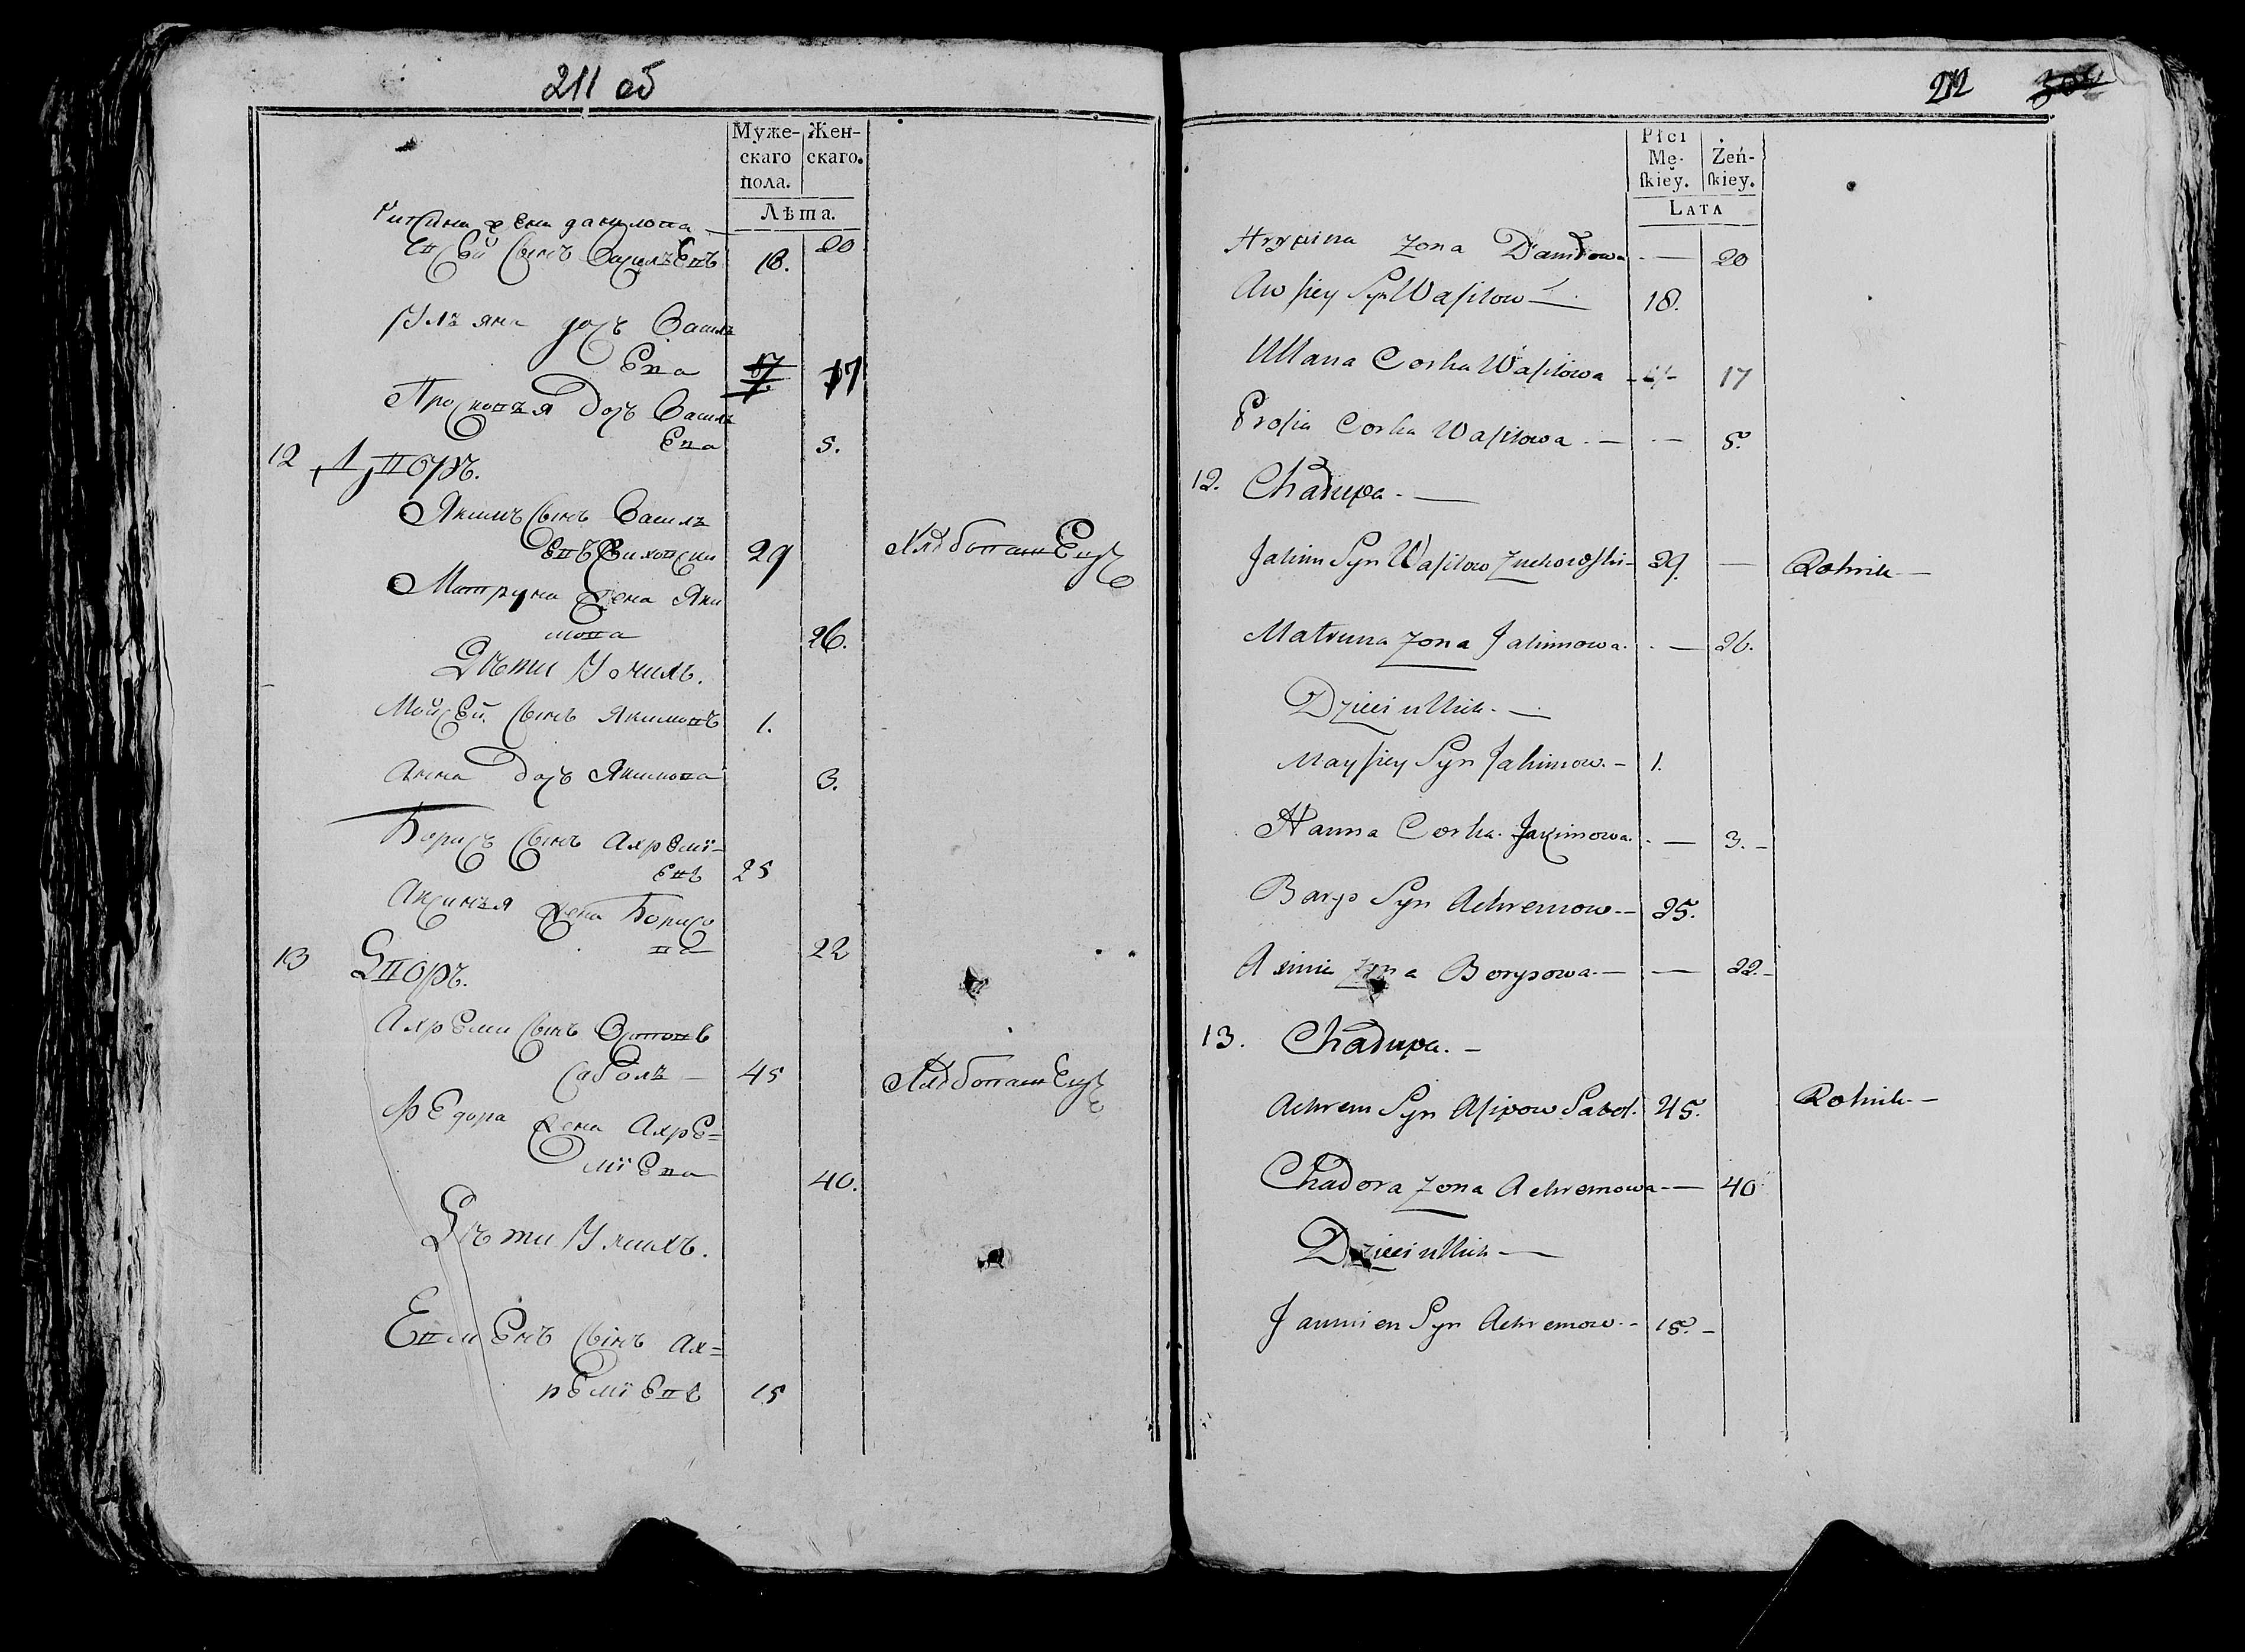 211 об
Муже- Жен-
скаго скаго.
пола.
Лѣта.
жена данилова 20
сын Василъевъ 18.
Улъяна дочь Василъ
ева 17 17
дочь Василъ
ева 5.
12 Дворъ.
Якимъ сынъ Василъ
евъ 29 Хлѣбопашецъ
Матруна жена Яки
мова 26.
Дѣти У онихъ.
Мойсей сынъ Якимовъ 1.
Анна дочь Якимова 3.
Борисъ сынъ Ахремі-
евъ 25
Аксинъя жена Борисо
ва 22
13 Дворъ.
Ахреми сынъ
Саболъ 45 Хлѣбопашецъ
Федора жена Ахре=
міева 40.
Дѣти У нихъ.
Евменъ сынъ Ах=
реміевъ 15
272
Płci
Mę- Żeń-
ſkiey. ſkiey.
Lata
Hrypina Zona Daniłowa - — 20
Awſiey Syn Waſilow — 18.
Ullana Corka Waſilowa 17
Proſia Corka Waſilowa - — 5.
12. Chałupa. —
Jakim Syn Waſilow Zuchowſki - 29. — Rolnik —
Matruna Zona Jakimowa. - — 26.
Dzieci u Nich. —
Mayſiey Syn Jakimow. - 1.
Hanna Corka Jakimowa. - — 3. -
Borys Syn Achremow. - 25.
Axinia Zona Borysowa. — — 22. -
13. Chałupa. -
Achrem Syn Aſipow Sabol. 45. Rolnik. —
Chadora Zona Achremowa — 40
Dzieci u Nich —
Jaumien Syn Achremow. - 15. -